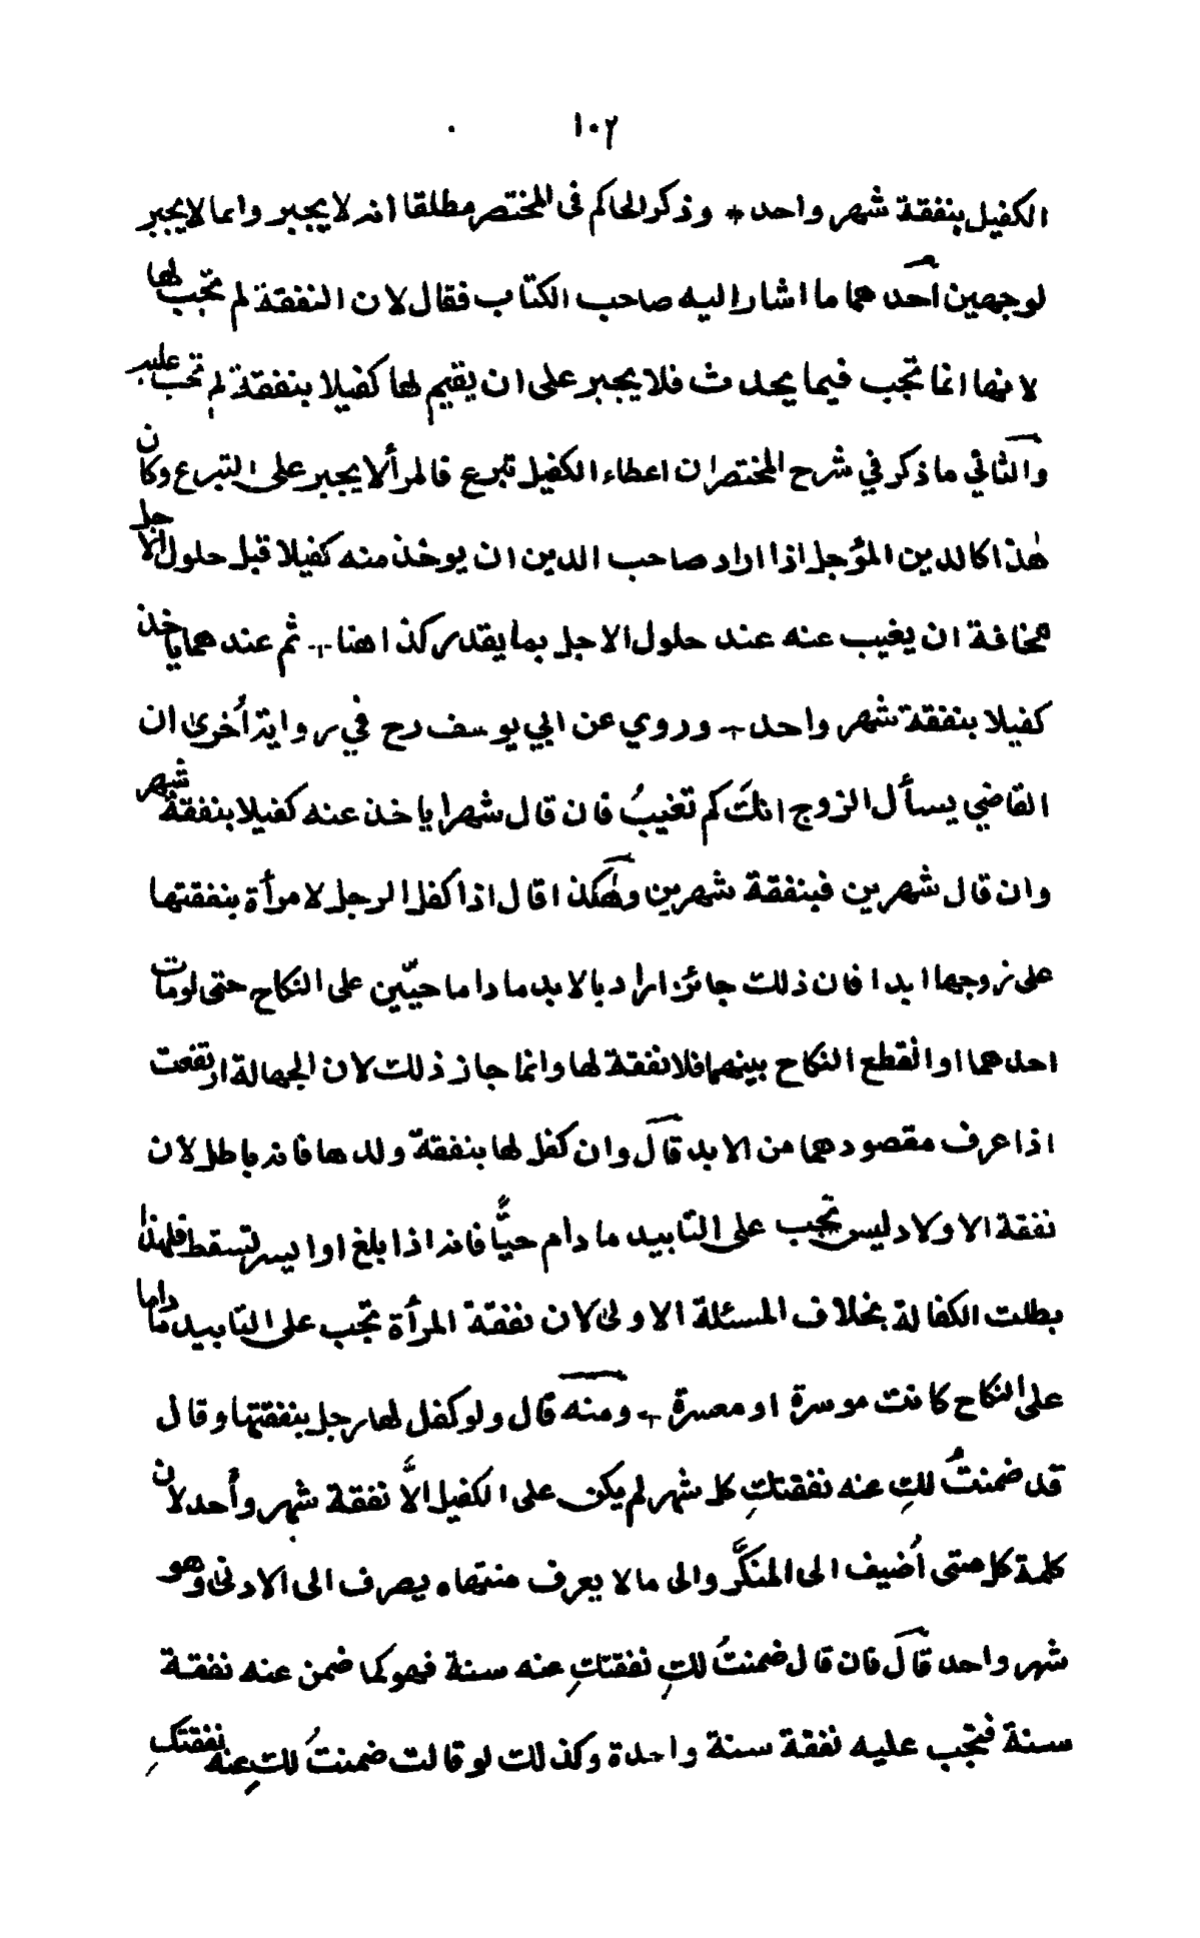 ١٠٢
الكفيل بنفقة شهر واحد * وذكر الحاكم فى المختصر مطلقا انه لا يجبر وانما لا يجبر
لوجهين احدهما ما اشار اليه صاحب الكتاب فقال لان النفقة لم تجب لها
لانها انما تجب فيما يحدث فلا يجبر على ان يقيم لها كفيلا بنفقة لم تجب عليه
والثاني ما ذكر في شرح المختصر ان اعطاء الكفيل تبرع فالمرأ لا يجبر على التبرع وكان
هٰذا كالدين المؤجل اذا اراد صاحب الدين ان يوخذ منه كفيلا قبل حلول الاجل
مخافة ان يغيب عنه عند حلول الاجل بما يقدر كذا هنا + ثم عندهما ياخذ
كفيلا بنفقة شهر واحد + وروي عن ابي يوسف رح في رواية أخرىٰ ان
القاضي يسأل الزوج انكَ كم تغيبُ فان قال شهرا ياخذ عنه كفيلا بنفقة شهر
وان قال شهرين فبنفقة شهرين وهٰكذا قال اذا كفل الرجل لامرأة بنفقتها
على زوجها ابدا فان ذلك جائز اراد بالابد ما داما حيّين على النكاح حتى لو مات
احدهما او انقطع النكاح بينهما فلا نفقة لها وانما جاز ذلك لان الجهالة ارتفعت
اذا عرف مقصودهما من الابد قال وان كفل لها بنفقة ولدها فانه باطل لان
نفقة الاولاد ليس تجب على التابيد ما دام حيًّا فانه اذا بلغ او ايسر تسقط فلهذا
بطلت الكفالة بخلاف المسئلة الاولىٰ لان نفقة المرأة تجب على التابيد ما داما
على النكاح كانت موسرة او معسرة + ومنه قال ولو كفل لها رجل بنفقتها وقال
قد ضمنتُ لكِ عنه نفقتكِ كل شهر لم يكن على الكفيل الَّا نفقة شهر وأحد لان
كلمة كل متى أُضيف الى المنكَّر والى ما لا يعرف منتهاه يصرف الى الادنىٰ وهو
شهر واحد قال فان قال ضمنتُ لكِ نفقتكِ عنه سنة فهو كما ضمن عنه نفقة
سنة فتجب عليه نفقة سنة واحدة وكذلك لو قالت ضمنتُ لكِ عنه نفقتكِ